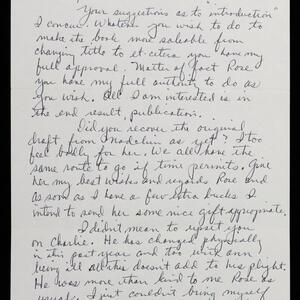 "Your suggestions as to "introduction"
I concur. Whatever you wish to do to
make the book more saleable from
changing title to et cetera you have my
full approval. Matter of fact Rose
you have my full authority to do as
you wish. All I am interested in is
the end result, publication.
Did you recover the original
draft from Madelin as yet? I too
feel badly for her. We all have the
same route to go if time permits. Give
her my best wishes and regards Rose and
as soon as I have a few extra bucks I
intend to send her some nice gift appropriate.
I didn't mean to upset you
on Charlie. He has changed physically
in this past year and too with Ann
being ill all this doesn't add to his plight.
He was more than kind to me Rose as
usual. I just couldn't being myself